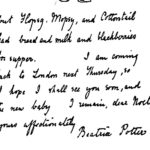 but Flopsy, Mopsy, and Cottontail
had bread and milk and blackberries
for supper. I am coming
back to London next Thursday, so
I hope I shall see you soon, and
the new baby I remain, dear Noel,
yours affectionately
Beatrix Potter